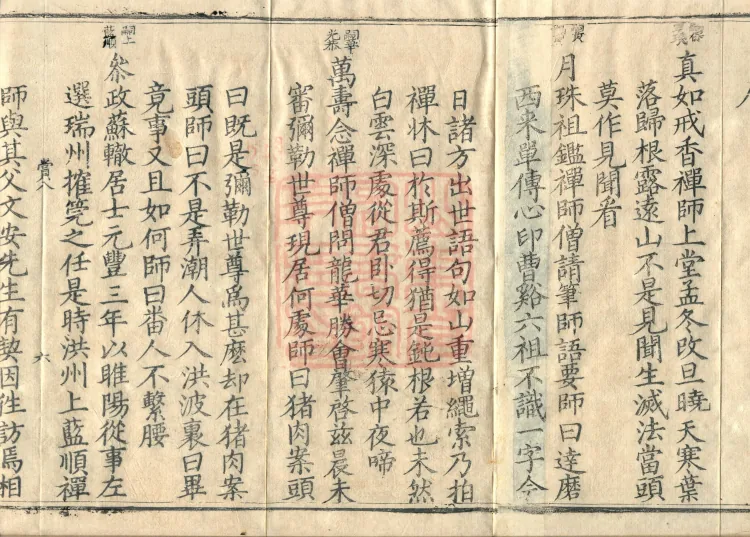 真如戒香禪師上堂孟冬改旦曉天寒葉
落歸根露遠山不是見聞生滅法當頭
莫作見聞看
月珠祖鑑禪師僧請筆師語要師曰達磨
西来單傳心印曹谿六祖不識一字今
日諸方出世語句如山重增繩索乃拍
禪牀曰於斯薦得猶是鈍根若也未然
白雲深處從君卧切忌寒猿中夜啼
萬壽念禪師僧問龍華勝會肇啓玆晨未
審彌勒世尊現居何處師曰猪肉案頭
曰既是彌勒世尊爲甚麽却在猪肉案
頭師曰不是弄潮人休入洪波裏曰畢
竟事又且如何師曰畨人不繫腰
嗣上
藍順
叅政蘇轍居士元豐三年以睢陽從事左
選瑞州搉筦之任是時洪州上藍順禪
賞八 六
師與其父文安先生有契因徃訪焉相